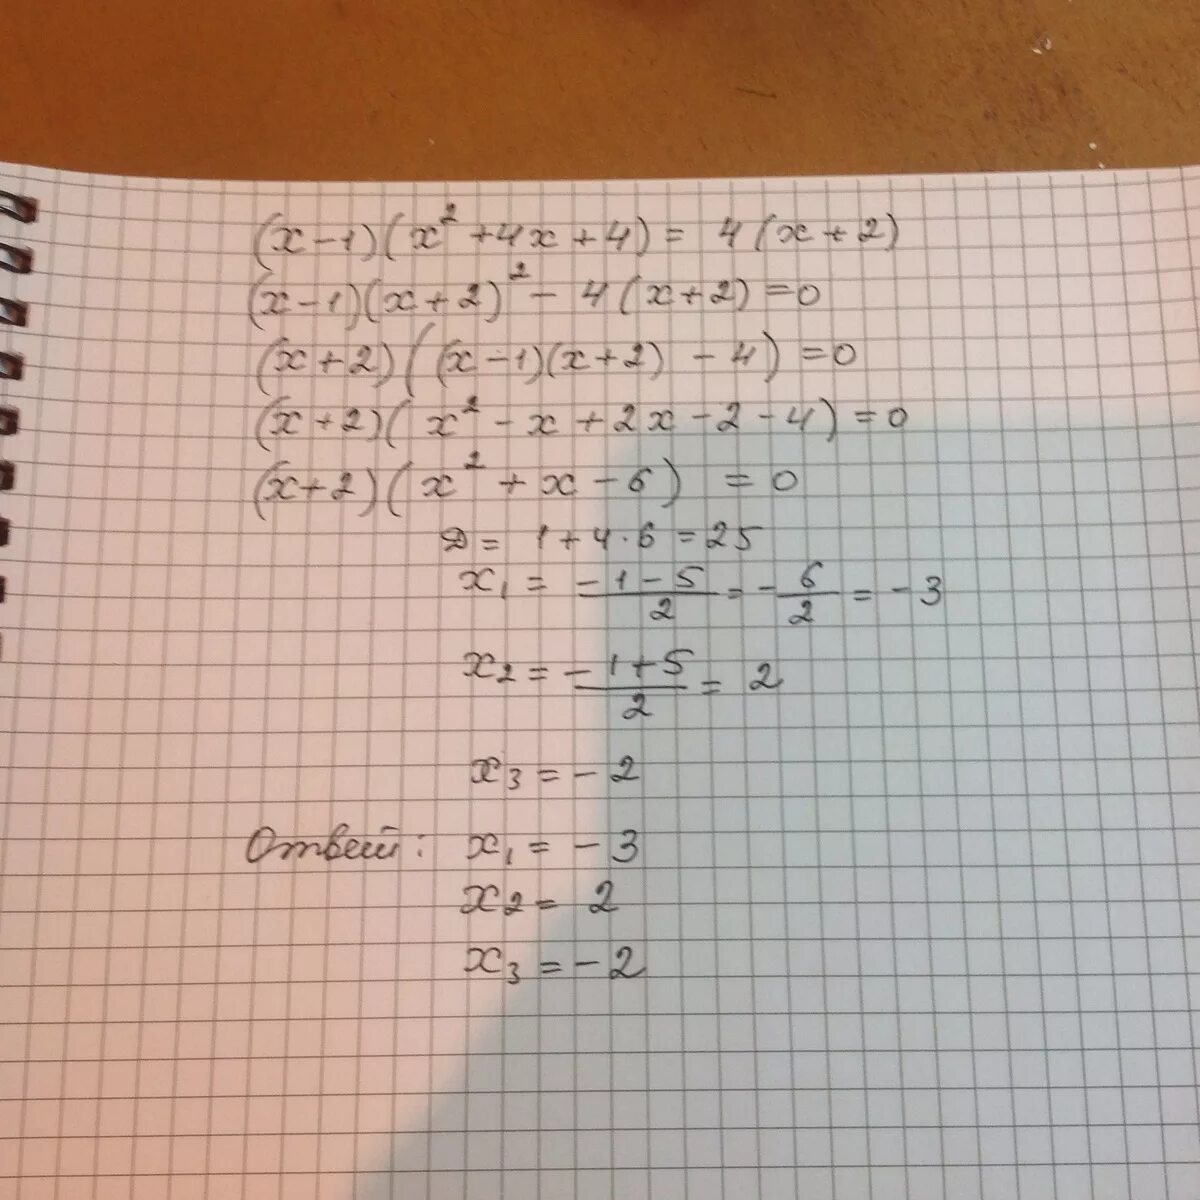 (x-1)(x²+4x+4) = 4(x+2)
(x-1)(x+2)² - 4(x+2) = 0
(x+2)((x-1)(x+2) - 4) = 0
(x+2)(x² - x + 2x - 2 - 4) = 0
(x+2)(x² + x - 6) = 0
D = 1 + 4·6 = 25
x₁ = (-1-5)/2 = -6/2 = -3
x₂ = (-1+5)/2 = 2
x₃ = -2
Ответ: x₁ = -3
x₂ = 2
x₃ = -2